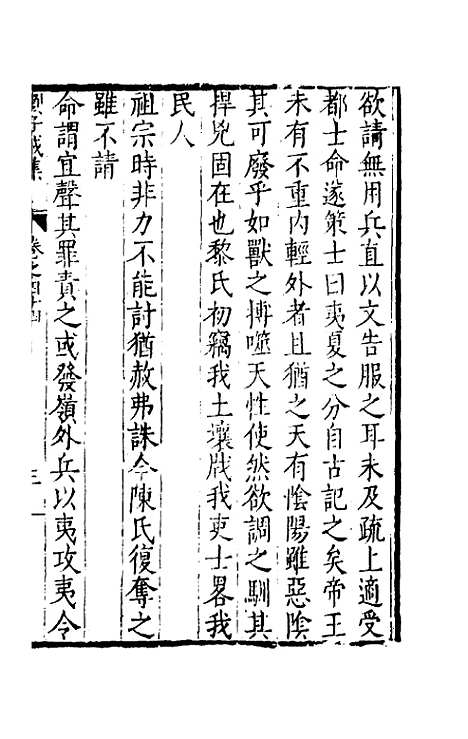 欲請無用兵直以文告服之耳未及疏上適受
都士命遂策士曰夷夏之分自古記之矣帝王
未有不重内輕外者且猶之天有陰陽雖惡陰
其可廢乎如獸之搏噬天性使然欲調之馴其
捍兇固在也黎氏初竊我土壤戕我吏士畧我
民人
祖宗時非力不能討猶赦弗誅今陳氏復奪之
雖不請
命謂宜聲其罪責之或發嶺外兵以夷攻夷令
卷之四十四